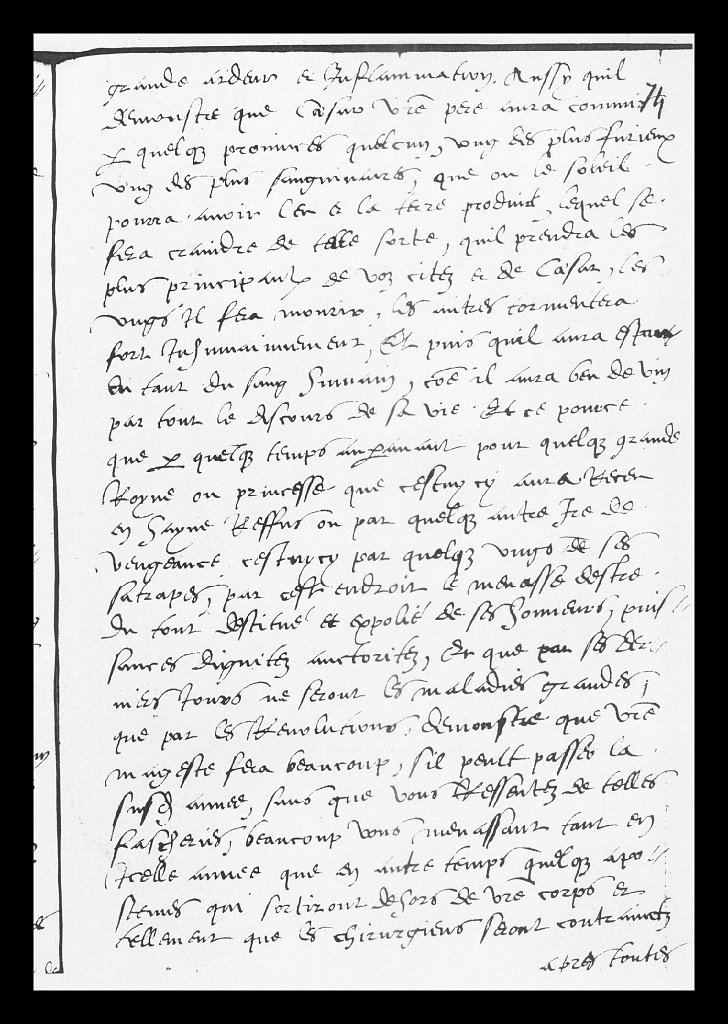 grande ardeur et Inflammation. Aussy quil
demonstre que Cæsar vre pere aura commis 74
p quelq3 prouinces quelcun, vng des plus furieux
vng des plus sanguinaires, que on le soleil
pourra auoir leu et la terre produict, lequel se
fera craindre de telle sorte, quil prendra les
plus principaulx de voz citez et de Cæsar, les
vngs Il fera mourir, les autres tormentera
fort Inhumainement, Et puis quil aura
en tant du sang humain, coe il aura beu de vin
par tout le discours de sa vie. Et ce pource
que p quelq3 temps auparauant pour quelq3 grande
Royne ou princesse que cestuycy aura Receu
en hayne Reffus ou par quelq3 autre Ire de
vengeance cestuycy par quelq3 vngs de ses
satrapes, par cest endroit le menasse destre
du tout destitué et expolié de ses honneurs, puis=
sances dignitez auctoritez, Et que par ses der=
niers Iours ne seront les maladies grandes,
que par les Reuolutions, demonstre que vre
mageste fera beaucoup, sil peult passer la
susd annee, sans que vous Ressentez de telles
fascheries, beaucoup vous menassant tant en
Icelle annee que en autre temps quelq3 apo=
stemes qui sortiront dehors de vre corps et
tellement que les chirurgiens seront contrainctz
apres toutes